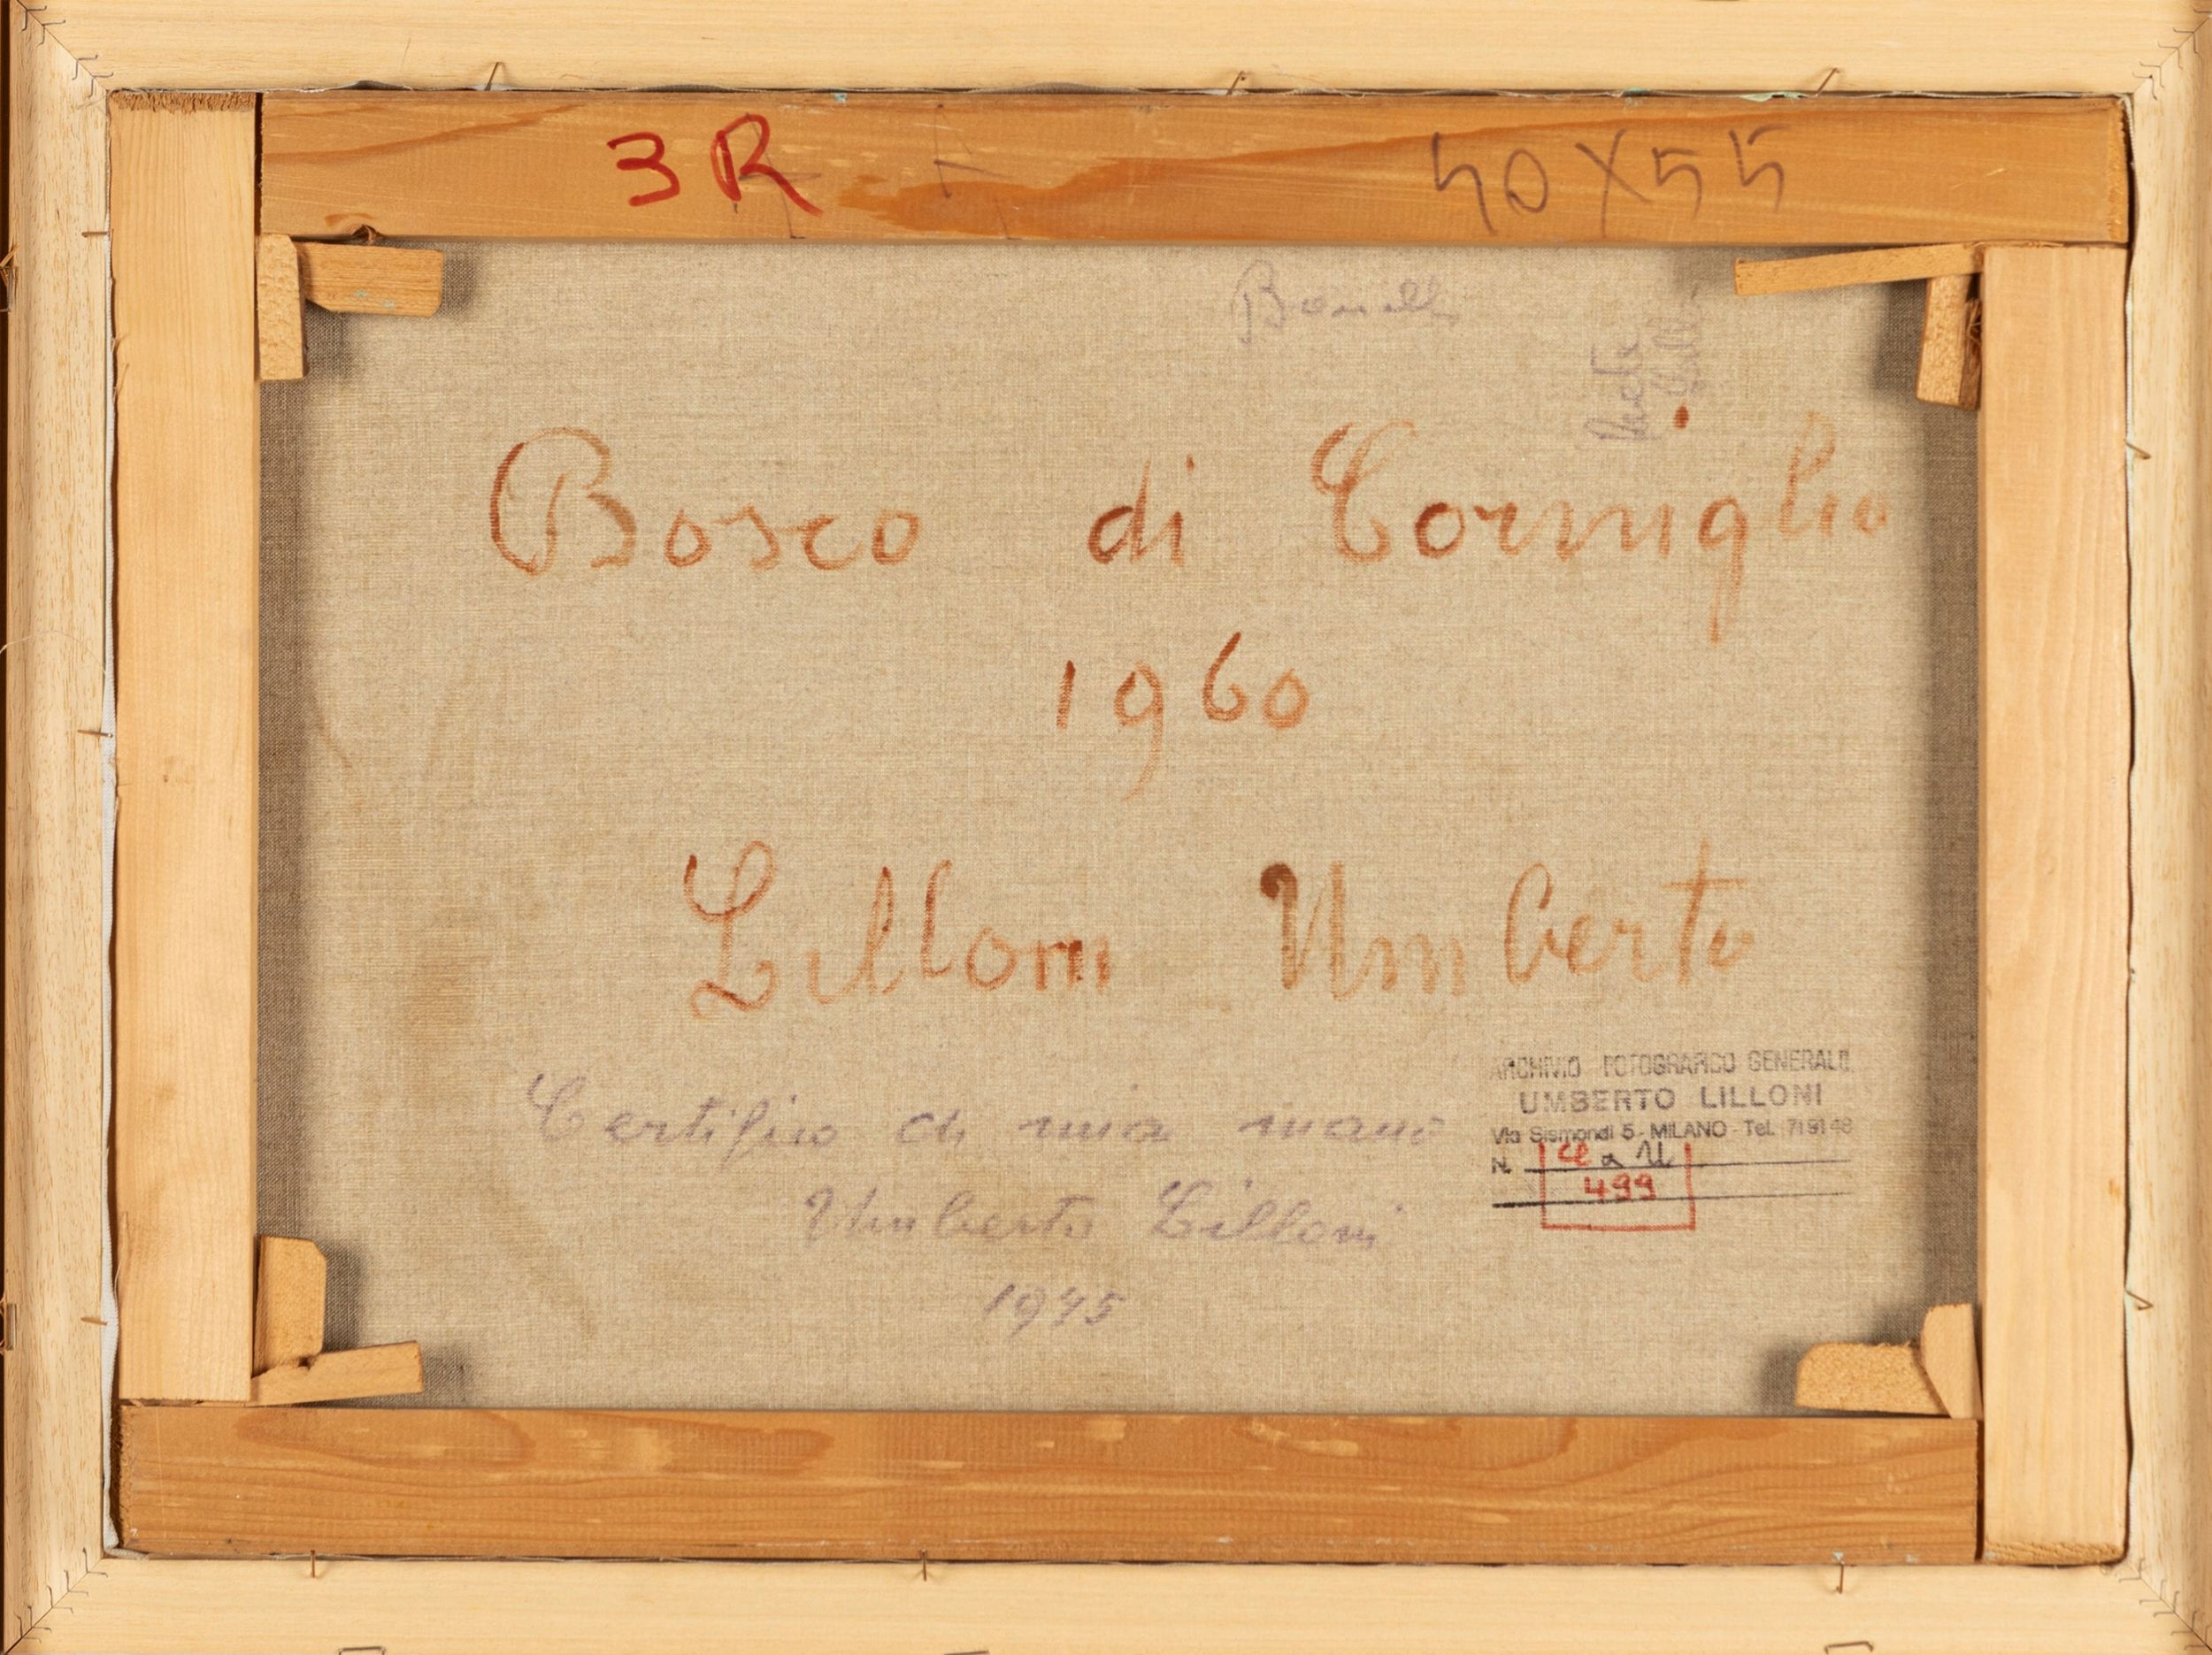 3R
40X55
Bosco di Corniglio
1960
Lilloni Umberto
Certifico di mia mano
Umberto Lilloni
1975
ARCHIVIO FOTOGRAFICO GENERALE
UMBERTO LILLONI
Via Sismondi 5 - MILANO - Tel. 719148
N.
499